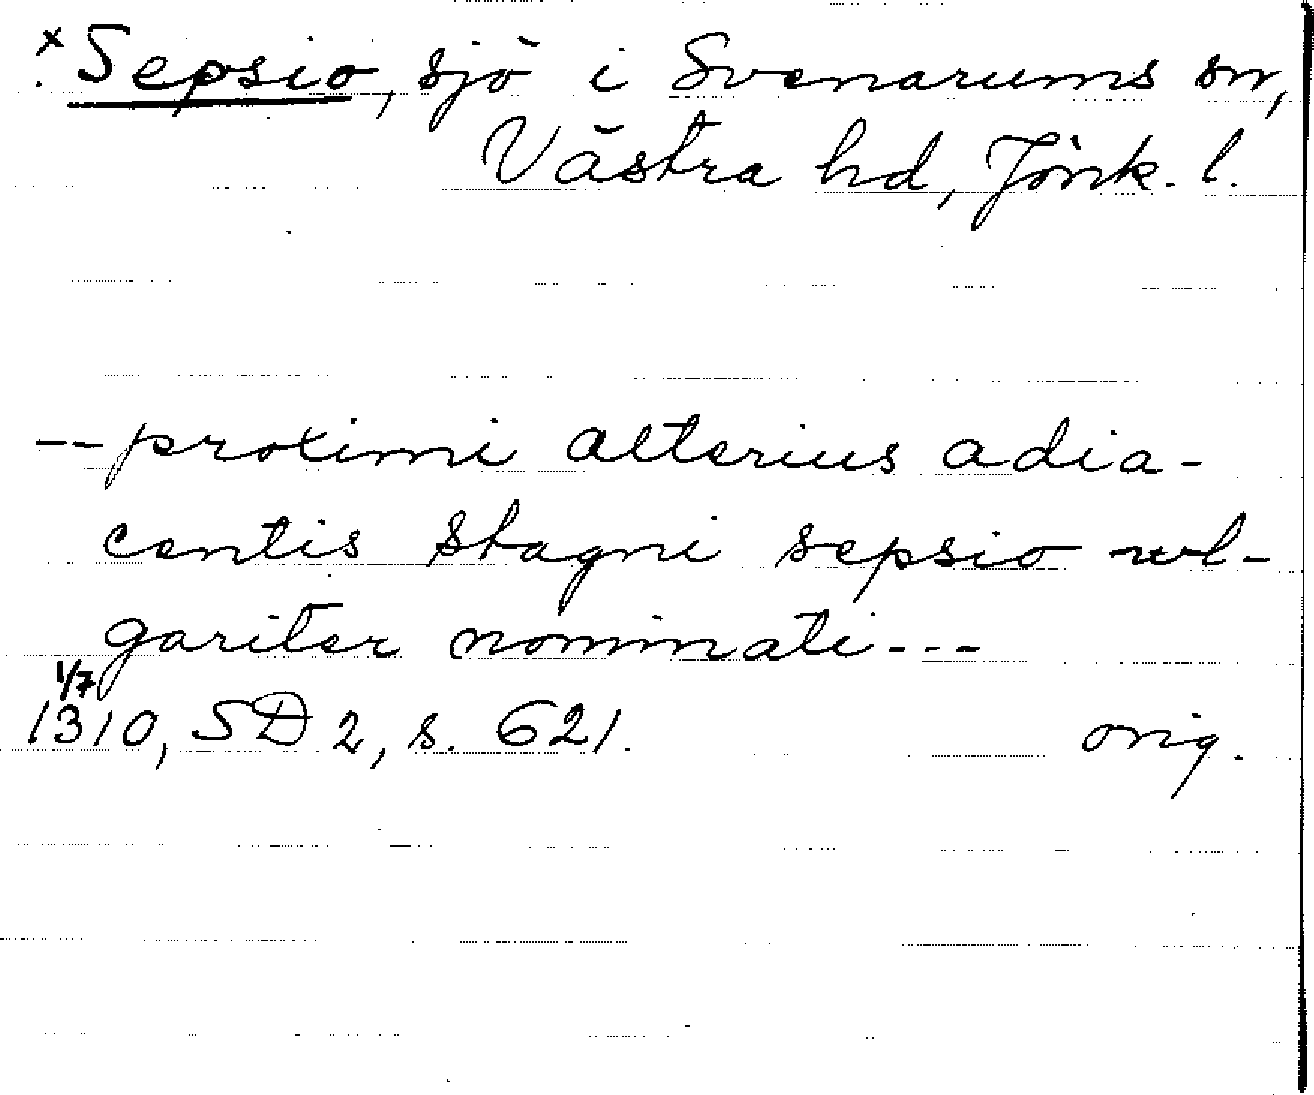 x Sepsio, sjö i Svenarums sn,
Västra hd, Jönk. l.
-- proximi alterius adia-
centis stagni sepsio wl-
gariter nominati ---
1/7
1310, SD 2, s. 621. orig.